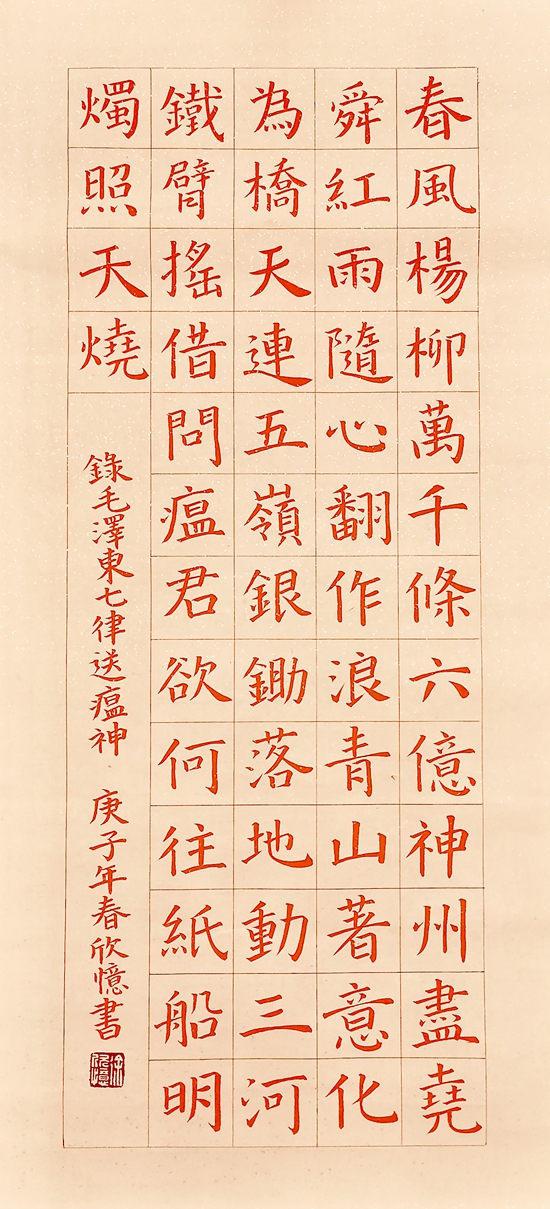 春風楊柳萬千條六億神州盡堯
舜紅雨隨心翻作浪青山著意化
為橋天連五嶺銀鋤落地動三河
鐵臂搖借問瘟君欲何往紙船明
燭照天燒
錄毛澤東七律送瘟神 庚子年春欣憶書